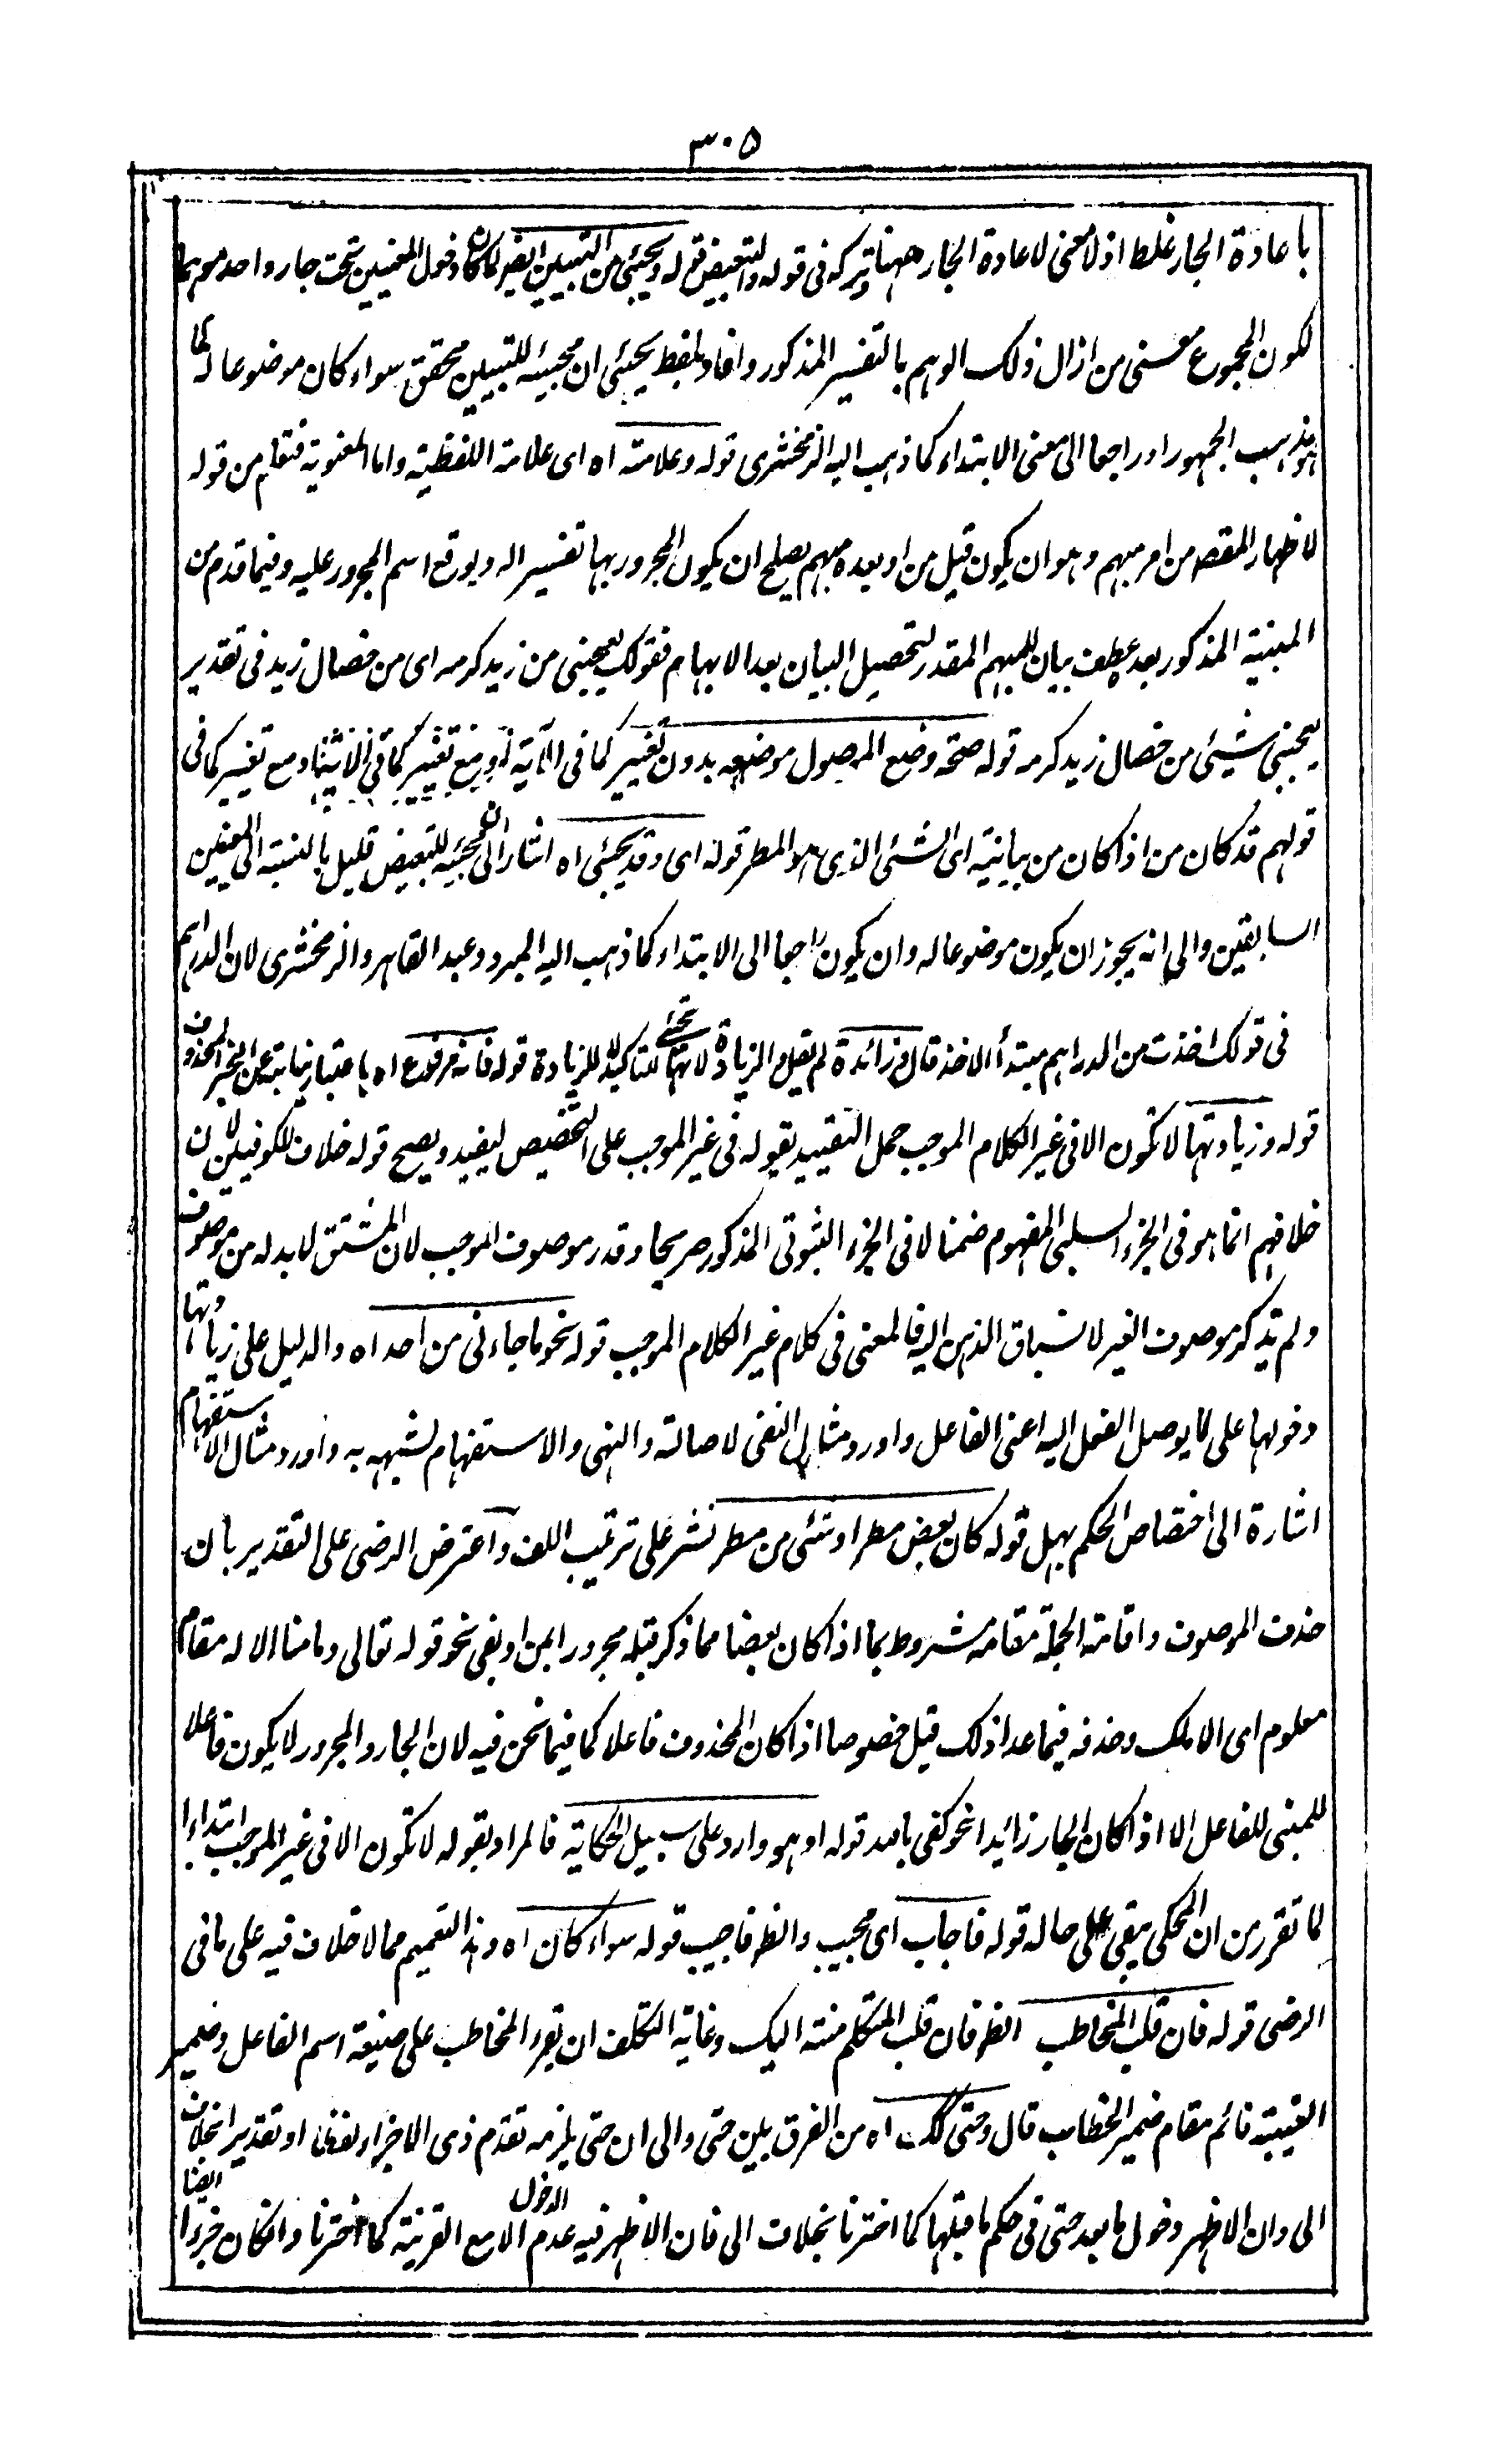 ٣٠٥
باعادة الجار غلط اذ لا معنى لاعادة الجار ههنا وتركه فى قوله والتبعيض قوله ويجيئ من التبيين ايضا لما كان دخول المعنيين تحت جار واحد موهما
لكون المجموع معنى من ازال ذلك الوهم بالتفسير المذكور وافاد بلفظ يجيئ ان مجيئه للتبيين محقق سواء كان موضوعا له كما
هو مذهب الجمهور او راجعا الى معنى الابتداء كما ذهب اليه الزمخشرى قوله وعلامته اه اى علامته اللفظية واما المعنوية فتعلم من قوله
لاظهار المقصد من امر مبهم وهو ان يكون قبل من او بعده مبهم يصلح ان يكون المجرور بها تفسيرا له ويوقع اسم المجرور عليه وفيما قدم من
المبنية المذكور بعد عطف بيان للمبهم المقدر لتحصيل البيان بعد الابهام فقولك يعجبنى من زيد كرمه اى من خصال زيد فى تقدير
يعجبنى شيئ من خصال زيد كرمه قوله صحة وضع الموصول موضعه بدون تغيير كما فى الآية ومع تغيير كما فى
قولهم قد كان من اذا كان من بيانية اى الشئ الذى هو المطر قوله اى وقد يجيئ اه اشار الى ان مجيئه للتبعيض قليل بالنسبة الى المعنيين
السابقين والى انه يجوز ان يكون موضوعا له وان يكون راجعا الى الابتداء كما ذهب اليه المبرد وعبد القاهر والزمخشرى لان الدراهم
فى قولك اخذت من الدراهم مبتدأ الاخذ قال وزائدة لم يقل والزيادة لانها تجئ للتاكيد لا للزيادة قوله فانه مرفوع اه باعتبار نيابته عن الخبر المحذوف
قوله وزيادتها لا تكون الا فى غير الكلام الموجب حمل التقييد بقوله فى غير الموجب على التخصيص ليفيد ويصح قوله خلافا للكوفيين لان
خلافهم انما هو فى الجزء السلبى المفهوم ضمنا لا فى الجزء الثبوتى المذكور صريحا وقدر موصوف الموجب لان المشتق لا بد له من موصوف
ولم يذكر موصوف الغير لانسباق الذهن اليه فالمعنى فى كلام غير الكلام الموجب قوله نحو ما جاءنى من احد اه والدليل على زيادتها
دخولها على ما يوصل الفعل اليه اعنى الفاعل واورد مثال النفى لاصالته والنهى والاستفهام لشبهه به واورد مثال الاستفهام
اشارة الى اختصاص الحكم بهل قوله كان بعض مطر او شئى من مطر نشر على ترتيب اللف واعترض الرضى على التقدير بان
حذف الموصوف واقامة الجملة مقامه مشروط بما اذا كان بعضا مما ذكر قبله مجرورا بمن او بفى نحو قوله تعالى وما منا الا له مقام
معلوم اى الا ملك وحذفه فيما عدا ذلك قبل خصوصا اذا كان المحذوف فاعلا كما فيما نحن فيه لان الجار والمجرور لا يكون فاعلا
للمبنى للفاعل الا اذا كان الجار زائدا نحو كفى بالله قوله او هو وارد على سبيل الحكاية فالمراد بقوله لا تكون الا فى غير الموجب ابتداءا
لما تقرر من ان المحكى يبقى على حاله قوله فاجاب اى مجيب والظ فاجيب قوله سواء كان اه وهذا التعميم مما لا خلاف فيه على ما فى
الرضى قوله فان قلب المخاطب الظ فان قلب المتكلم منته اليك وغاية التكلف ان يقرا المخاطب على صيغة اسم الفاعل وضمير
الغيبة قائم مقام ضمير الخطاب قال وحتى كك اه من الفرق بين حتى والى ان حتى يلزمه تقدم ذى الاجزاء لفظا او تقديرا بخلاف
الى وان الاظهر دخول ما بعد حتى فى حكم ما قبلها كما اخترنا بخلاف الى فان الاظهر فيه عدم الدخول الا مع القرينة كما اخترنا وانكان جزءا ايضا